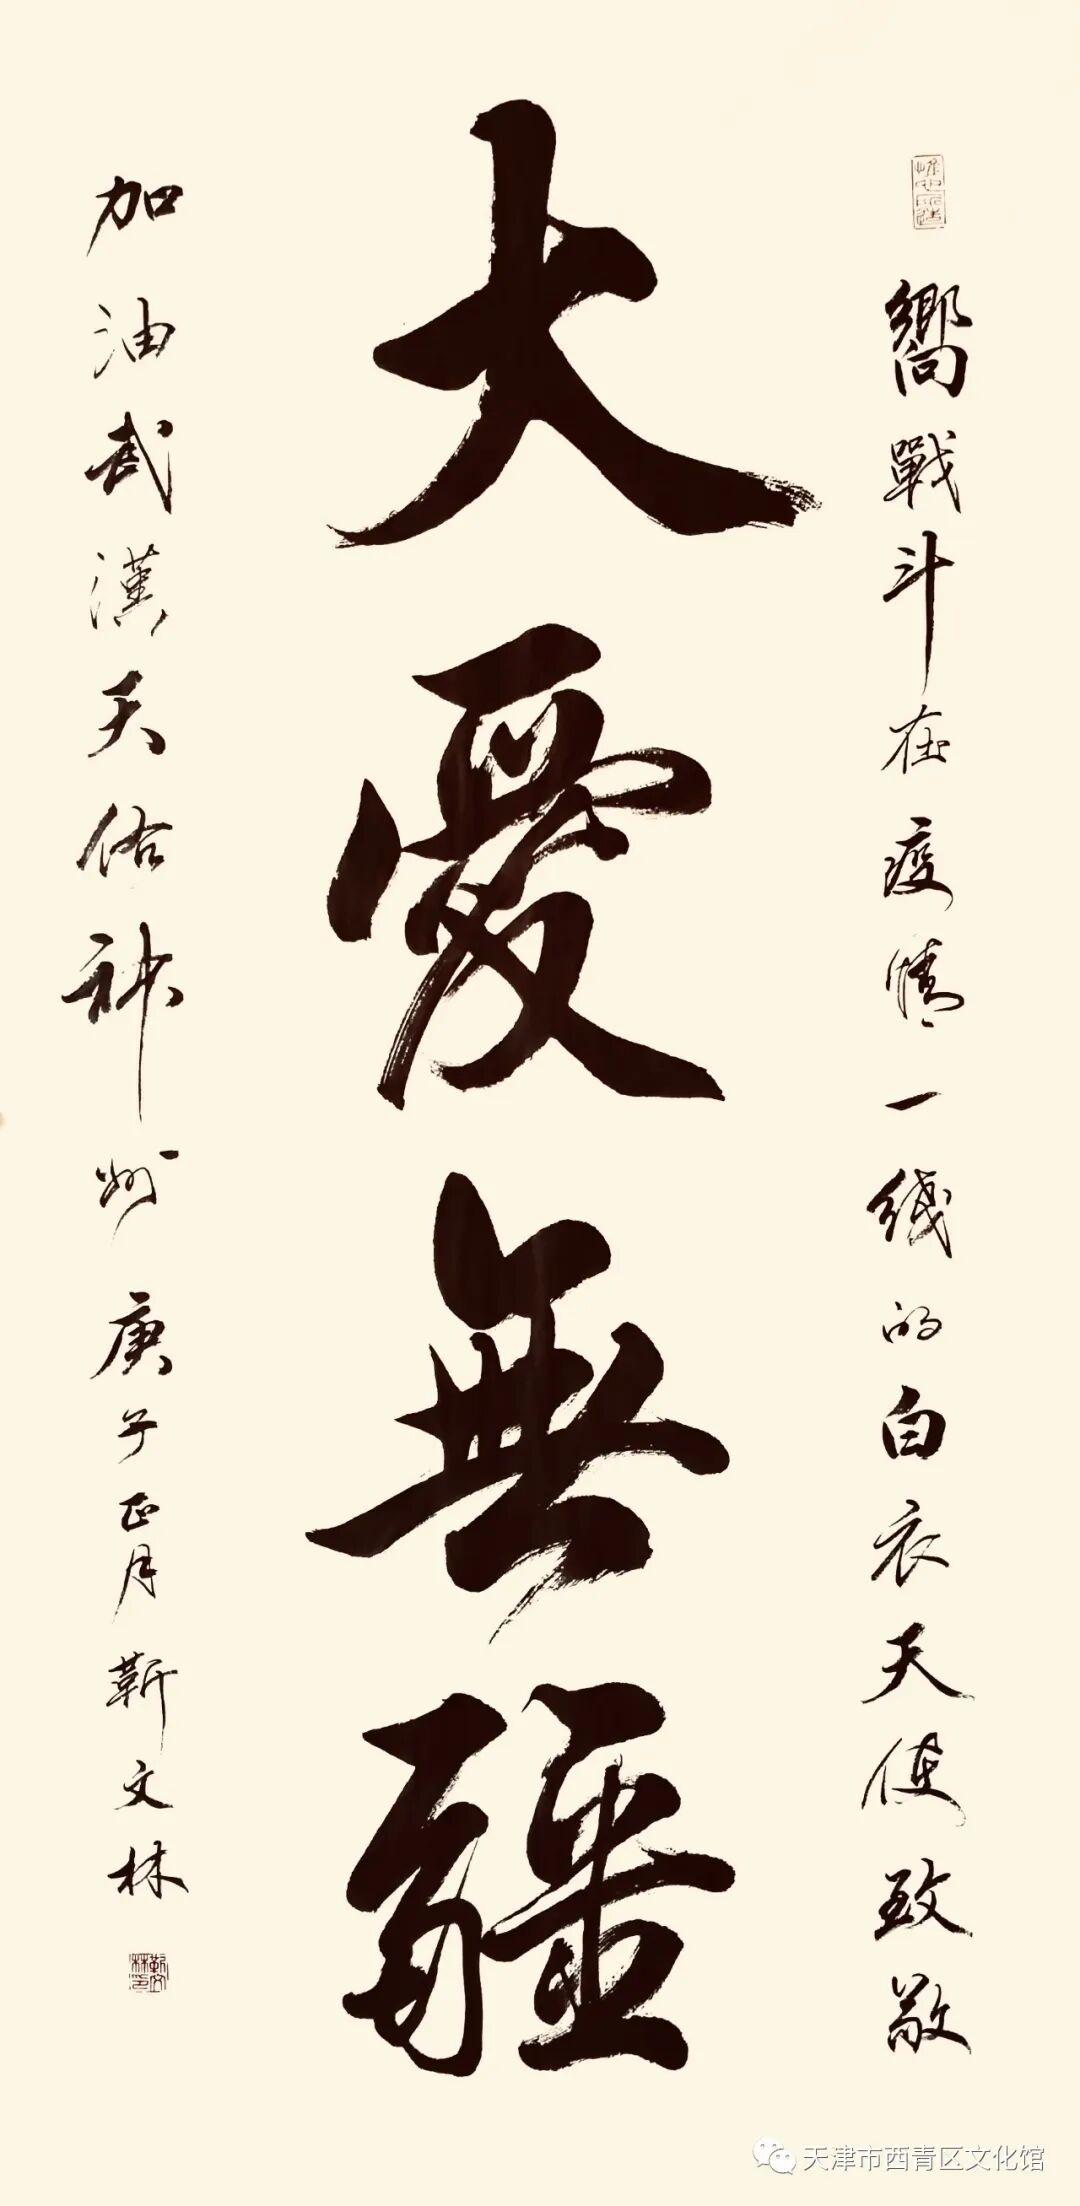 嚮戰斗在疫情一线的白衣天使致敬
大愛無疆
加油武漢天佑神州 庚子正月靳文林
靳文林印
天津市西青区文化馆